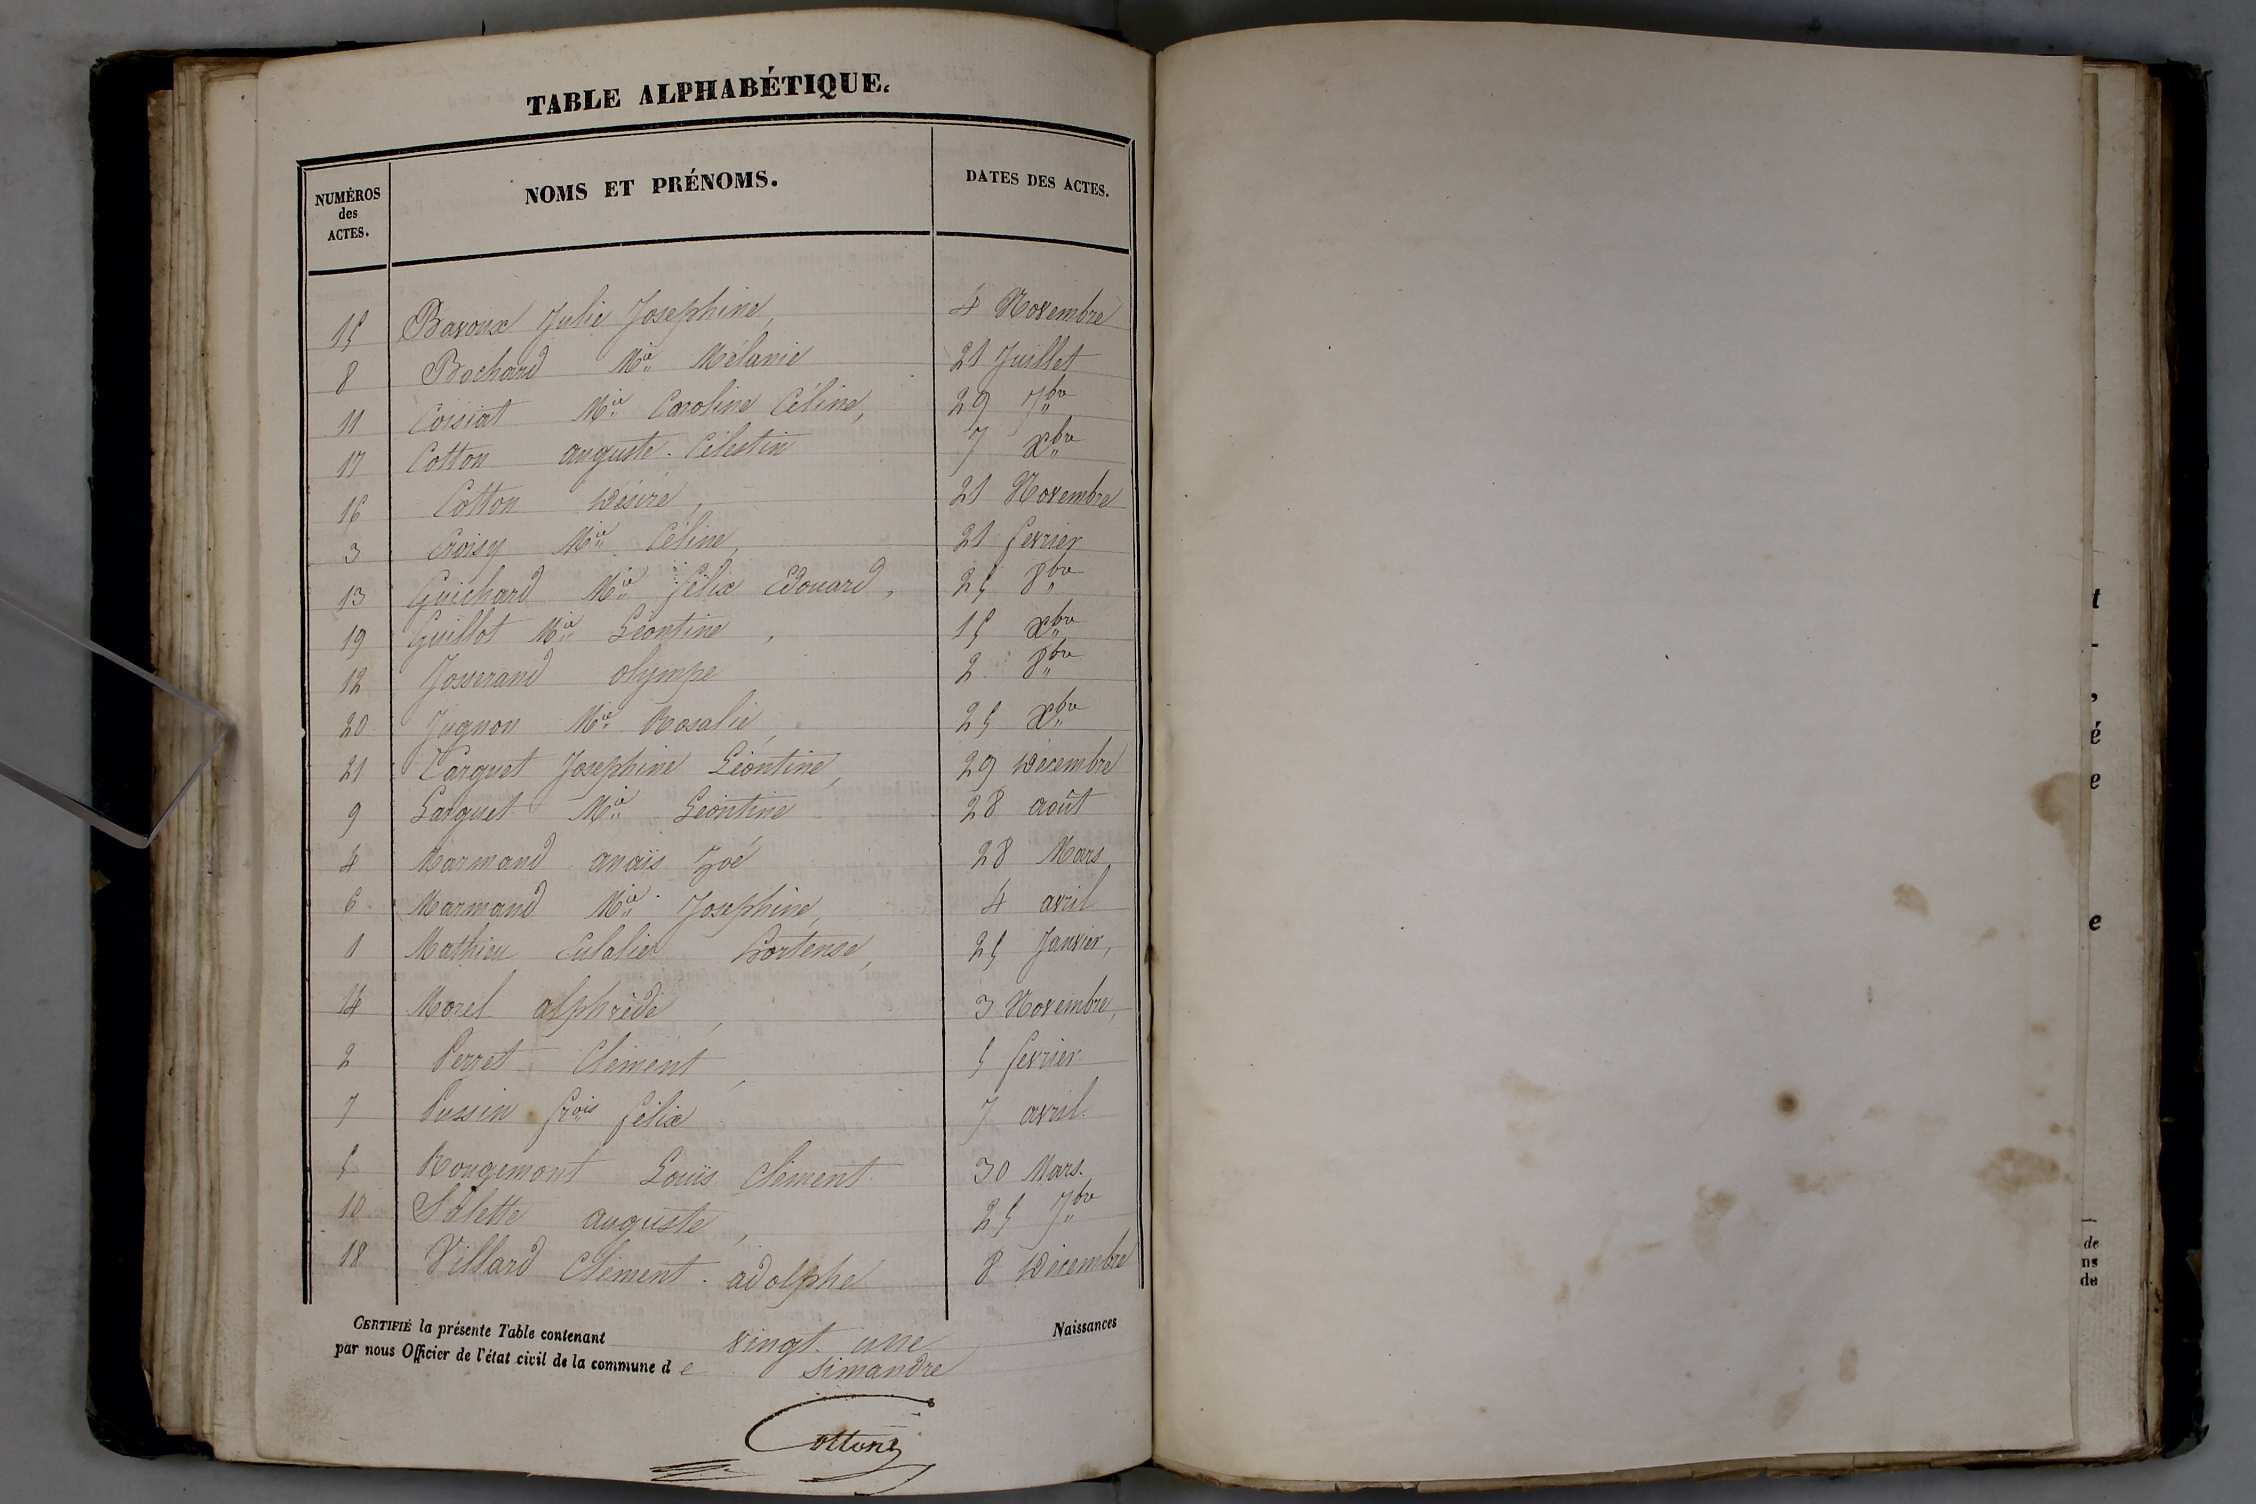 TABLE ALPHABÉTIQUE.
NUMÉROS des ACTES. NOMS ET PRÉNOMS. DATES DES ACTES.
15 Bavoux Julie Josephine, 4 Novembre
8 Bochard Mie Mélanie 21 Juillet
11 Corsiat Mie Caroline Céline, 29 7bre
17 Cotton auguste Célestin 7 Xbre
16 Cotton Désiré, 21 Novembre
3 Croisy Mie Céline, 21 fevrier
13 Guichard Mie félix Edouard, 25 8bre
19 Guillot Mie Léontine, 15 Xbre
12 Josserand olympe 2 8bre
20 Jugnon Mie Rosalie, 25 Xbre
21 Larguet Josephine Léontine, 29 Décembre
9 Larguet Mie Léontine 28 août
4 Marmand anaïs Zoé 28 Mars
6 Marmand Mie Josephine, 4 avril
1 Mathieu Eulalie Hortense, 25 Janvier,
14 Morel alphrède, 3 Novembre,
2 Perret Clément, 5 fevrier
7 Pussin frois félix 7 avril
5 Rougemont Louis Clément 30 Mars.
10 Solette auguste, 25 7bre
18 Villard Clément adolphe 8 Décembre
CERTIFIÉ la présente Table contenant vingt une Naissances
par nous Officier de l'état civil de la commune de simandre
Cotton
t
-
,
é
e
e
de
ns
de